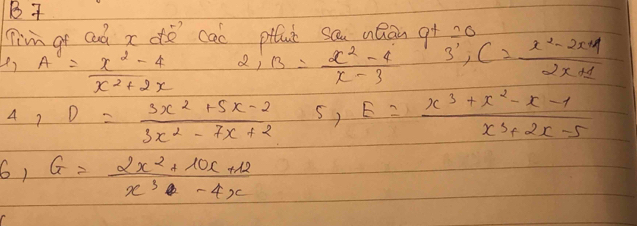 B 7
Tìm gt của x để các pthức sau nhận gt = 0
1, A = (x² - 4)/(x² + 2x) 2, B = (x² - 4)/(x - 3) 3, C = (x² - 2x + 1)/(2x + 1)
4, D = (3x² + 5x - 2)/(3x² - 7x + 2) 5, E = (x³ + x² - x - 1)/(x³ + 2x - 5)
6, G = (2x² + 10x + 12)/(x³ - 4x)